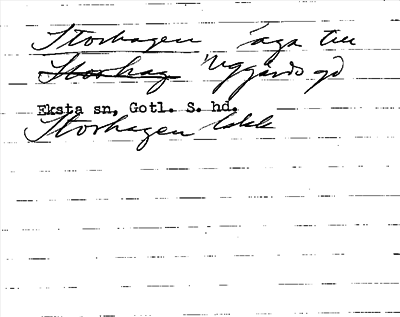 Storhagen äga till
Storhag Uggårds gd
Eksta sn, Gotl. S. hd.
Storhagen